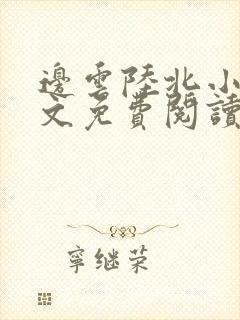 邊雲陸北小
文免費閱讀
寧继荣